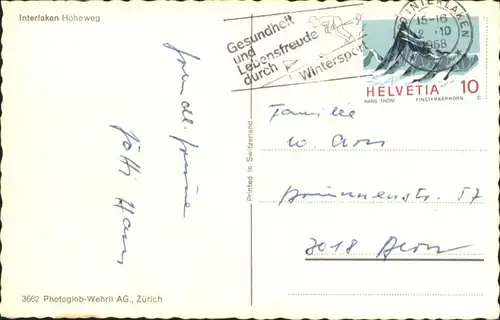 Interlaken Höheweg
Gesundheit
und
Lebensfreude
durch
Wintersport
INTERLAKEN
15-16
2. 10
1968
HELVETIA 10
HANS THÖNI FINSTERAARHORN
Familie
Printed in Switzerland
Götti Hans
3018 Bern
3662 Photoglob-Wehrli AG., Zürich